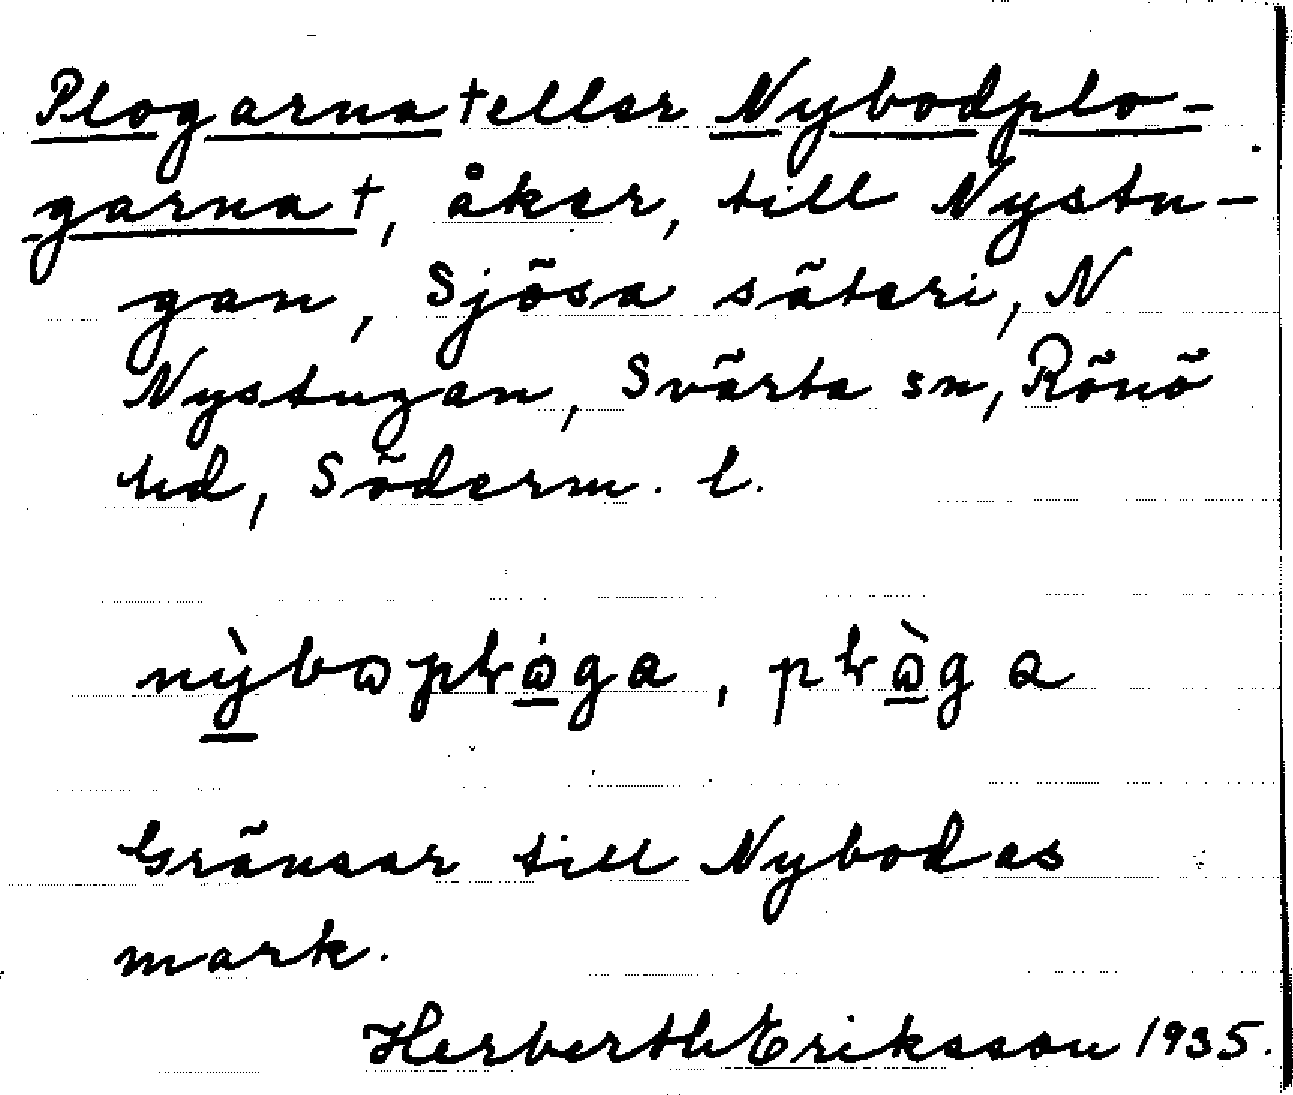 Plogarna † eller Nybodplo-
garna †, åker, till Nystu-
gan, Sjösa säteri, N
Nystugan, Svärta sn, Rönö
hd, Söderm. l.
nỳbɷpɫɷ̇ga, pɫɷ̀ga
Gränsar till Nybodas
mark.
Herberth Eriksson 1935.